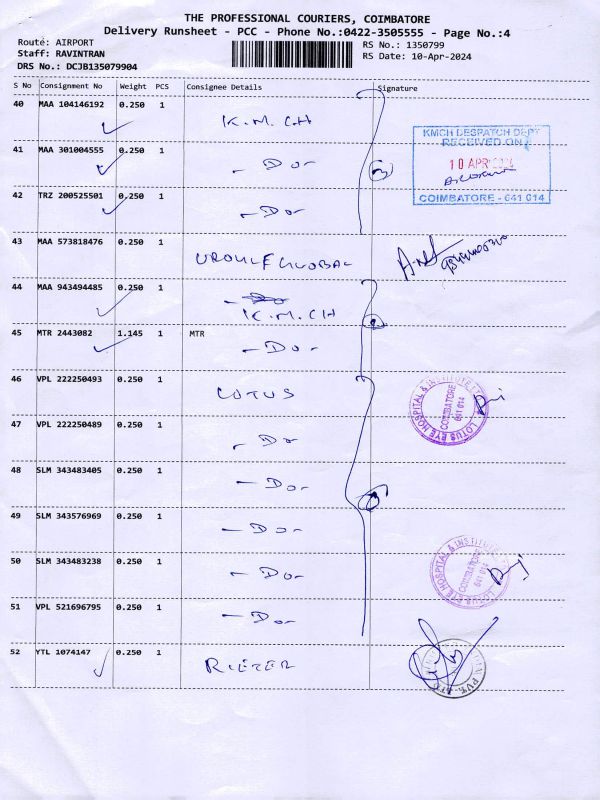 THE PROFESSIONAL COURIERS, COIMBATORE
Delivery Runsheet - PCC - Phone No.:0422-3505555 - Page No.:4
Route: AIRPORT
Staff: RAVINTRAN
DRS No.: DCJB135079904
RS No.: 1350799
RS Date: 10-Apr-2024
S No Consignment No Weight PCS Consignee Details Signature
40 MAA 104146192 0.250 1 K.M.C.H
KMCH DESPATCH DEPT
RECEIVED ON
10 APR 2024
COIMBATORE - 641 014
41 MAA 301004555 0.250 1 - Do -
42 TRZ 200525501 0.250 1 - Do -
43 MAA 573818476 0.250 1
44 MAA 943494485 0.250 1 K.M.CH
45 MTR 2443082 1.145 1 MTR - Do -
46 VPL 222250493 0.250 1 LOTUS
LOTUS EYE HOSPITAL & INSTITUTE
COIMBATORE
641 014
47 VPL 222250489 0.250 1 - Do -
48 SLM 343483405 0.250 1 - Do -
49 SLM 343576969 0.250 1 - Do -
50 SLM 343483238 0.250 1 - Do -
LOTUS EYE HOSPITAL & INSTITUTE
COIMBATORE
641 014
51 VPL 521696795 0.250 1 - Do -
52 YTL 1074147 0.250 1 RIETER
PVT. LTD